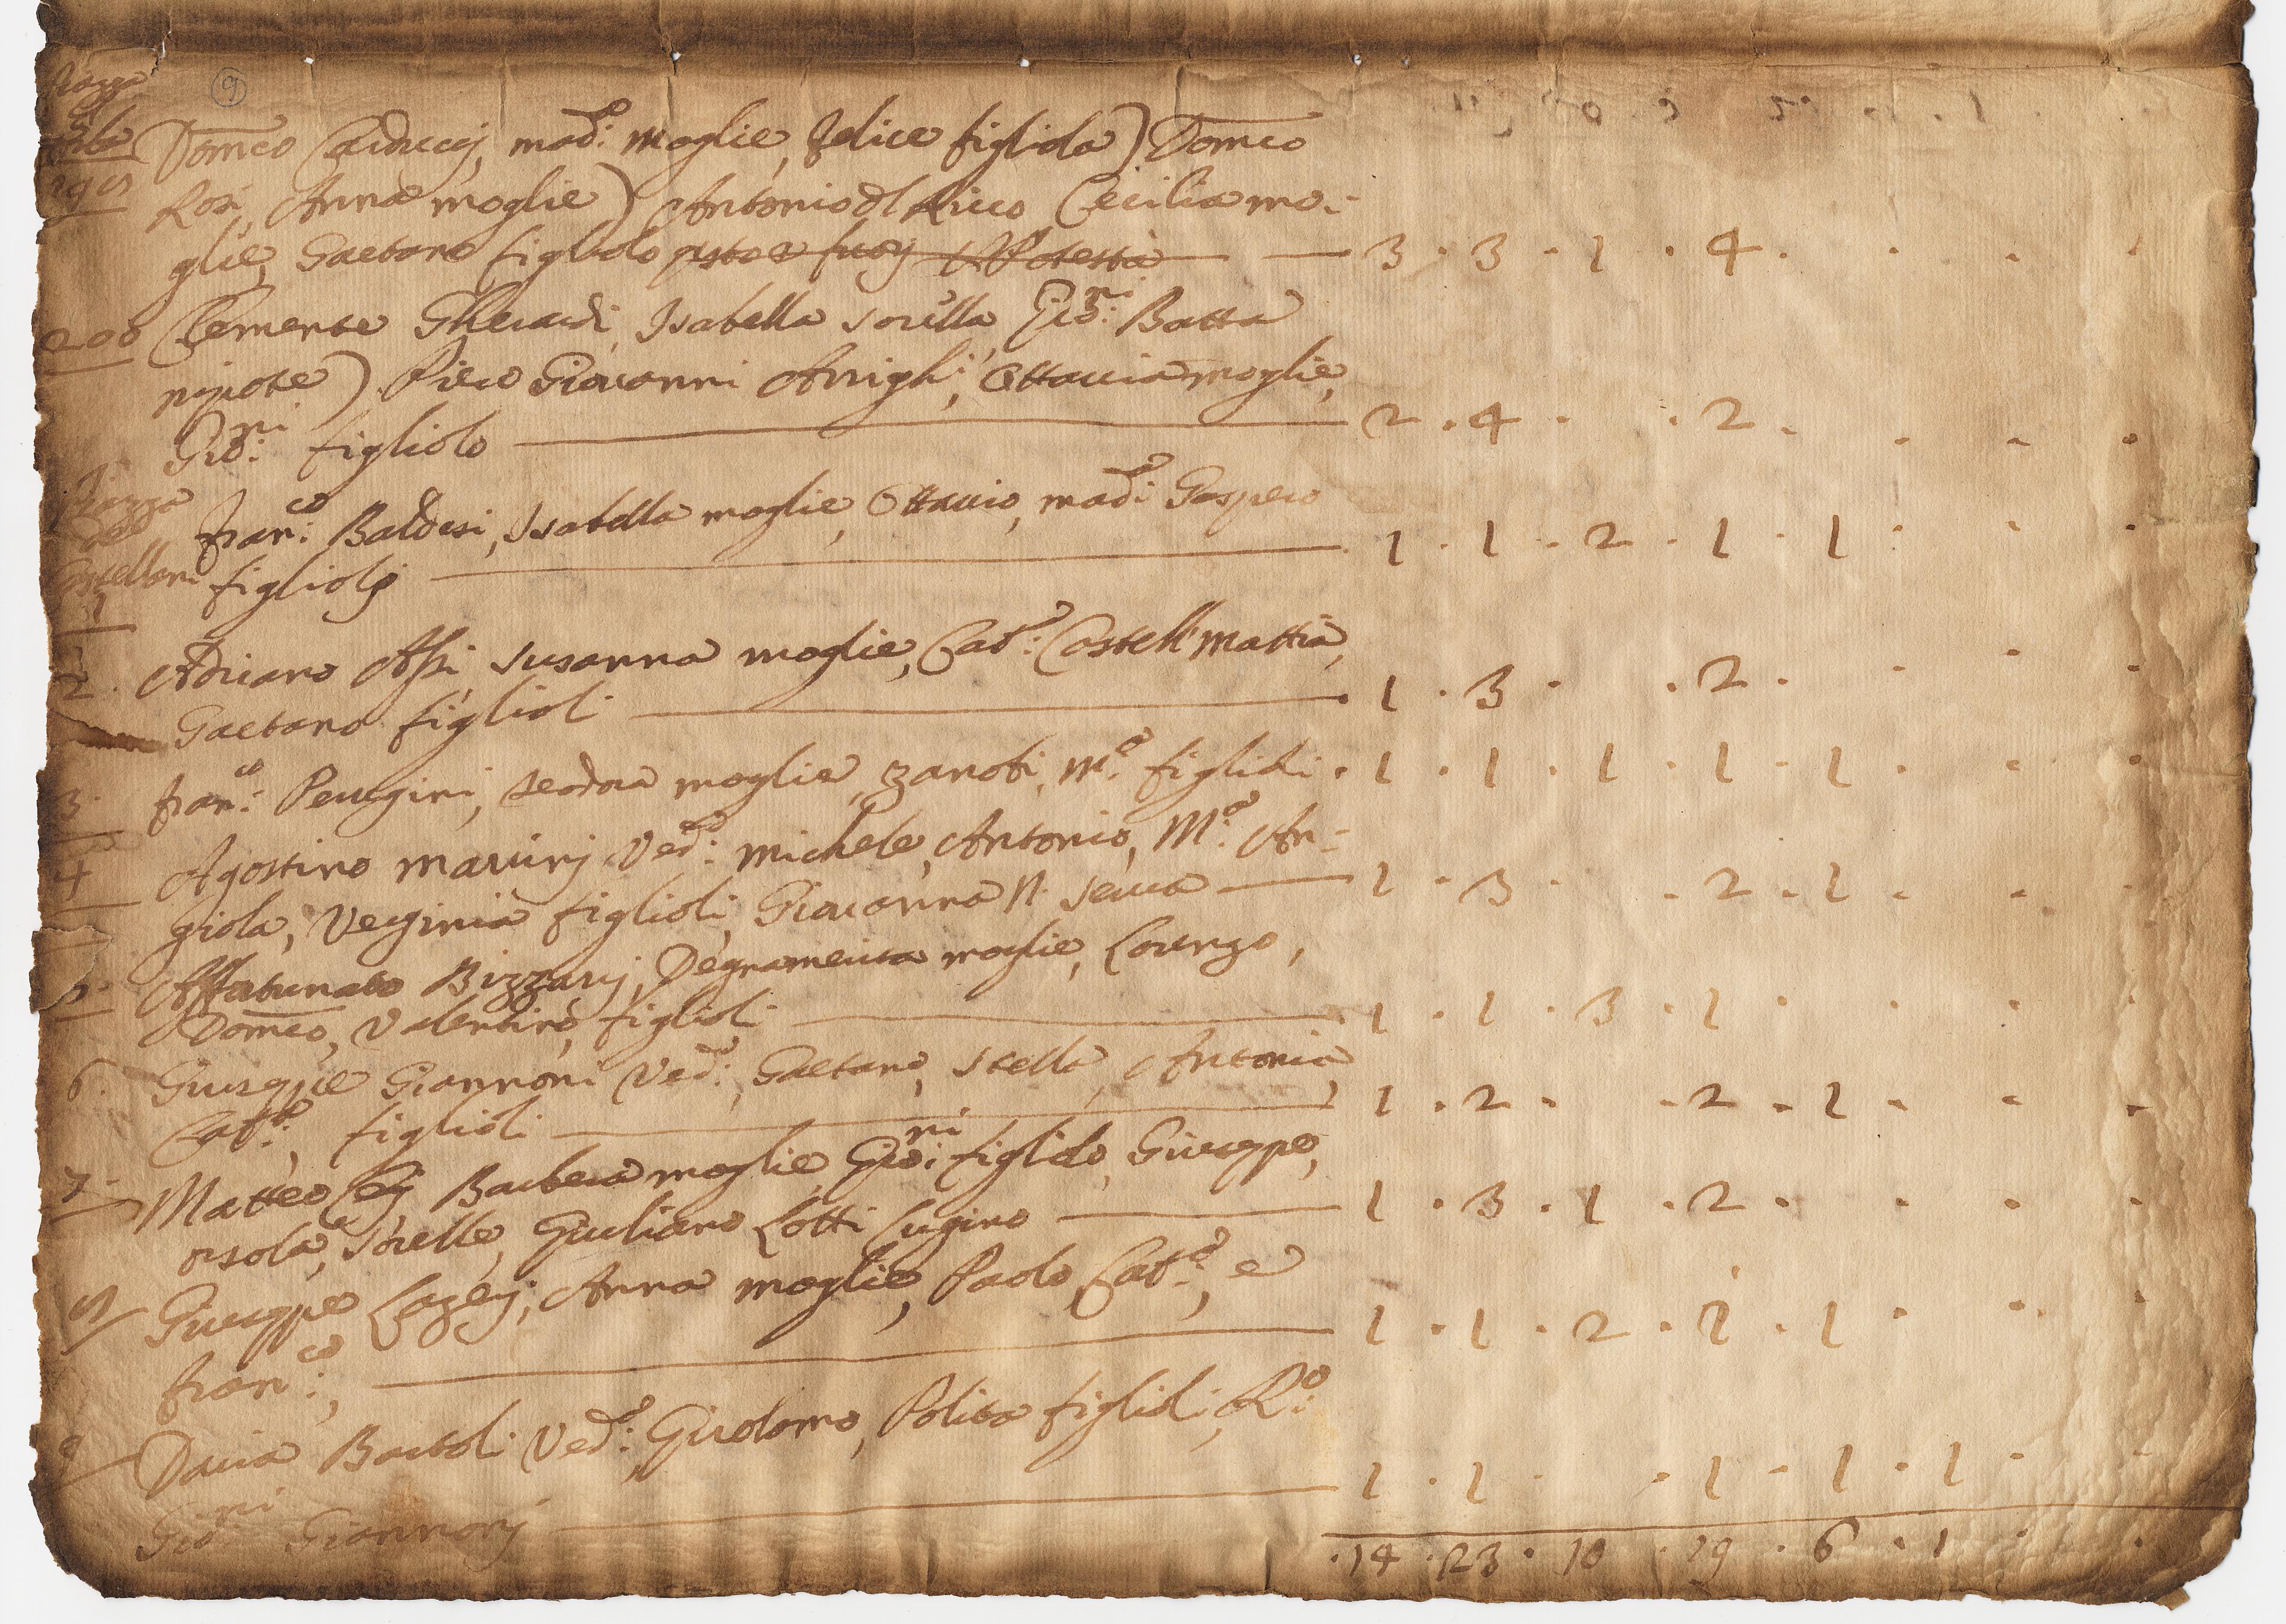 Piazza
9
Dom.co Carducci, mad.a moglie, felice figliola) Dom.co
Rosi, Anna moglie) Antonio dl Ricco Cecilia mo:
glie, Gaetano figliolo 3 . 3 . 1 . 4 .
200 Clemente Gherardi, Isabella sorella, Gio:ni Batta
nipote) Piero Giovanni Arrighi, Ottavia moglie,
Gio:ni figliolo 2 . 4 . . 2 .
Piazza
del
Castellani
1
Fran:co Baldesi, Isabella moglie, Ottavio, mad:a Gaspero
figliolj 1 . 1 . 2 . 1 . 1
2. Adriano Assi, Susanna moglie, Cat:a Castell' Mattia,
Gaetano figlioli 1 . 3 . . 2 .
3. Fran:co Perugini, Teodora moglie, Zanobi, M:a figlioli . 1 . 1 . 1 . 1 . 1 .
4 Agostino Mavirij Ved:o Michele, Antonio, M:a An=
giola, Verginia figlioli, Giovanna N. serva 1 . 3 . . 2 . 1 .
5. Affortunato Bizzarrj, Degnamerita moglie, Lorenzo,
Dom.co, Valentino, figlioli 1 . 1 . 3 . 1 .
6. Giuseppe Giannoni Ved:o, Gaetano, Stella, Antonia,
Cat:a, figlioli 1 . 2 . . 2 . 1 .
7. Matteo Cej Barbera moglie, Gio:ni figliolo, Giuseppe,
Orsola, sorelle, Giuliano Lotti Cugino 1 . 3 . 1 . 2 .
8 Giuseppe Lazerj, Anna moglie, Paolo, Cat:a, e
Fran:co, 1 . 1 . 2 . 1 . 1 .
9 Daria Bartoli Ved:a, Girolamo, Polita figlioli, R:o
Gio:ni Giannonj 1 . 1 . . 1 . 1 . 1 .
. 14 . 23 . 10 . 19 . 6 . 1 .